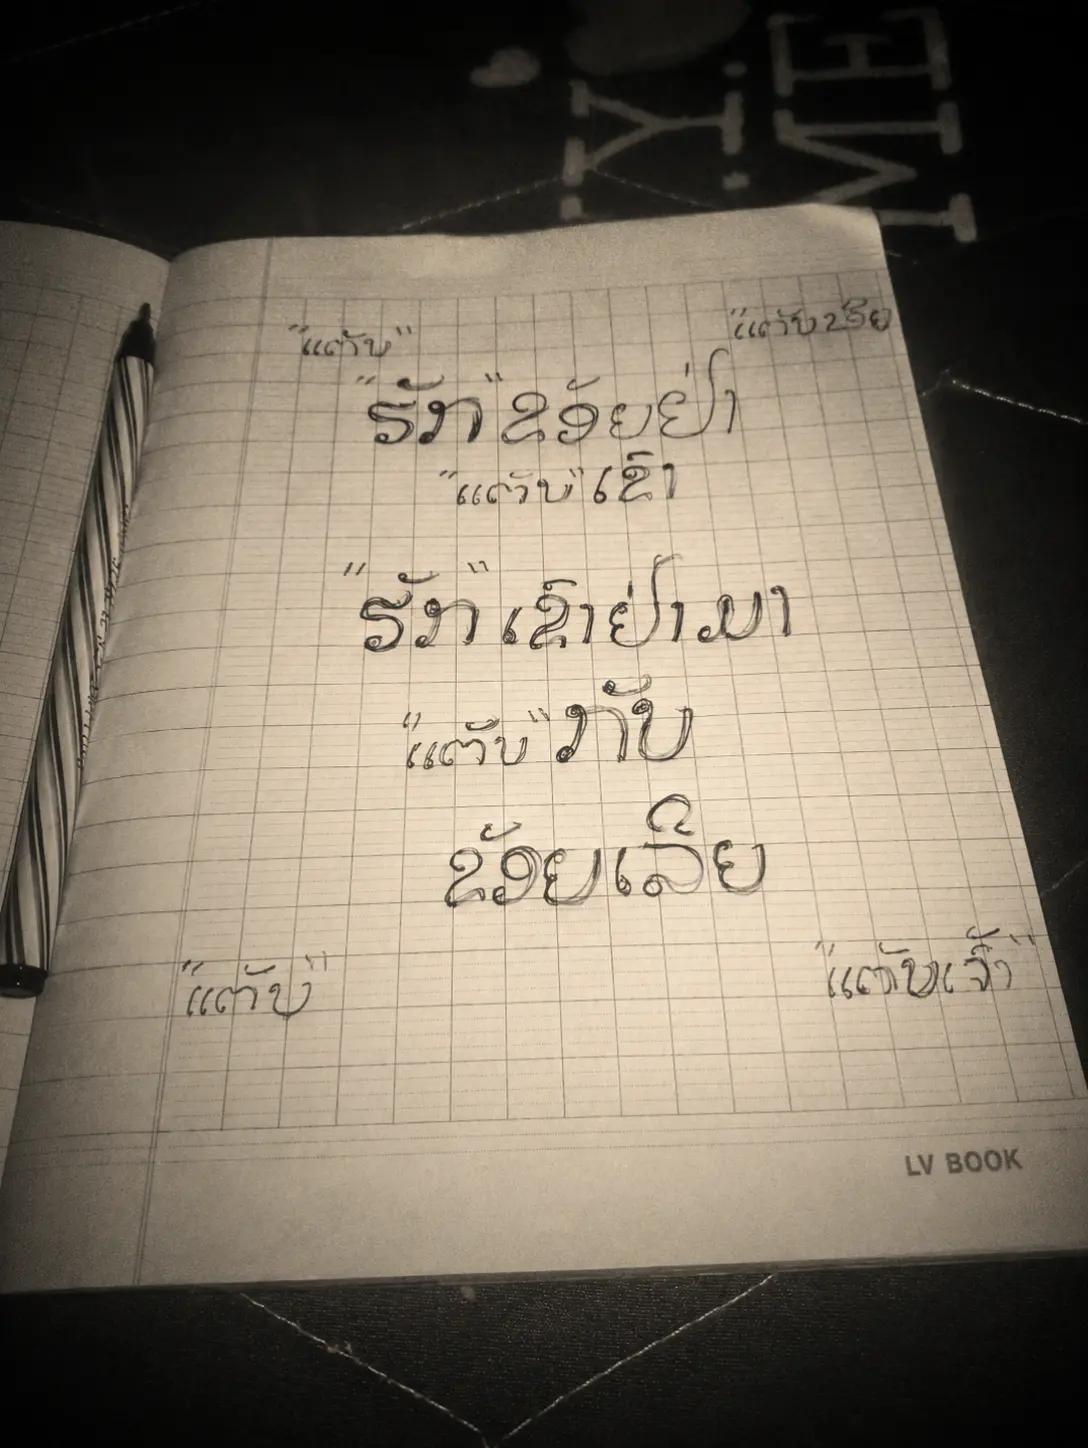 "ແຕ່ັບ"
"ແຕ່ັບຂ້ອຍ
"ຮັກ" ຂ້ອຍຢ່າ
"ແຕັບ" ເຂົາ
"ຮັກ" ເຂົາຢ່າມາ
"ແຕັບ" ກັບ
ຂ້ອຍເລີຍ
"ແຕັບ"
"ແຕັບເຈົ້າ"
LV BOOK